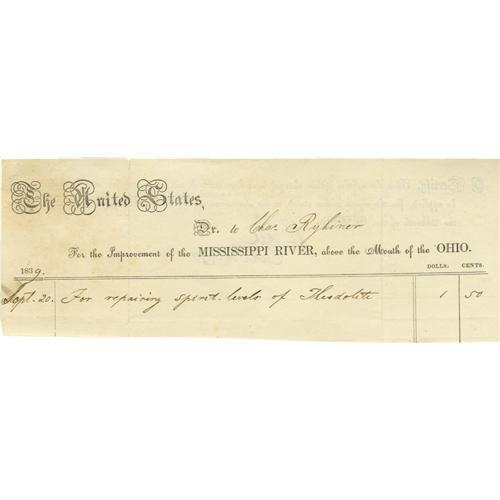 The United States,
Dr. to Chas. Ryhiner
For the Improvement of the MISSISSIPPI RIVER, above the Mouth of the OHIO.
1839. DOLLS. CENTS.
Sept. 20. For repairing spirit-levels of Theodolite 1 50